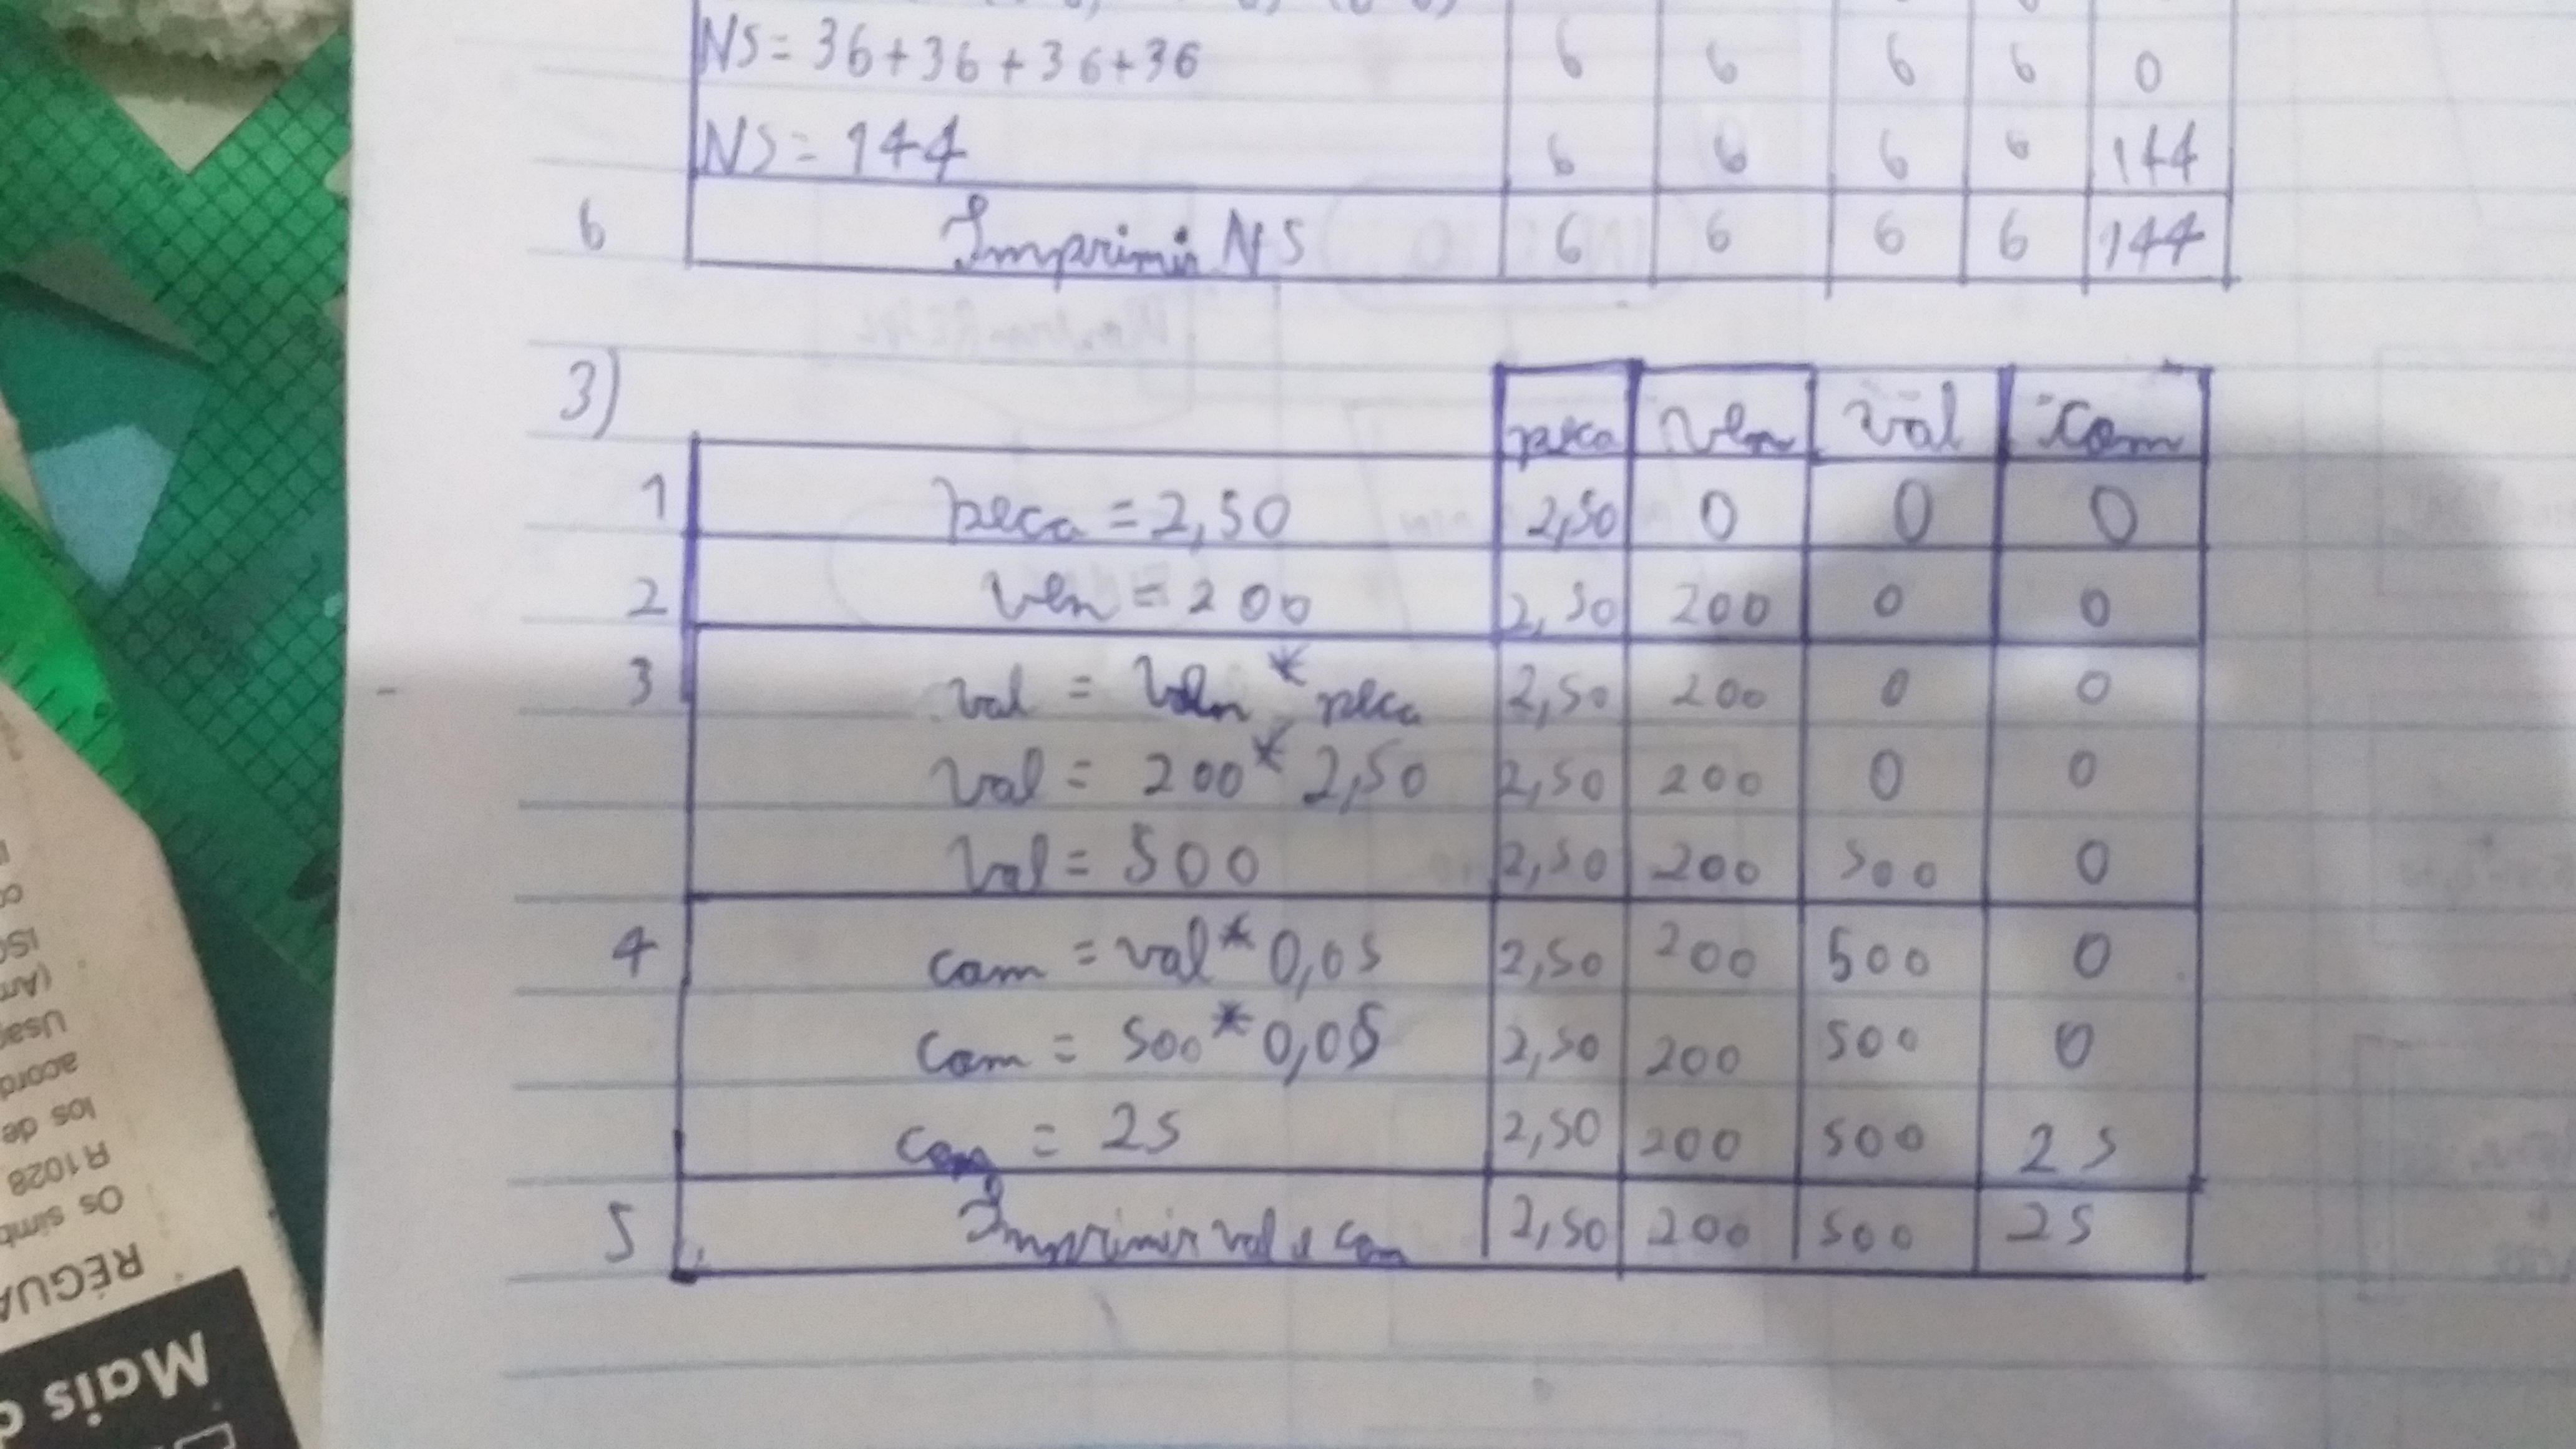 NS = 36 + 36 + 36 + 36 6 6 6 6 0
NS = 144 6 6 6 6 144
6 Imprimir NS 6 6 6 6 144
3)
peca ven val com
1 peca = 2,50 2,50 0 0 0
2 ven = 200 2,50 200 0 0
3 val = ven * peca 2,50 200 0 0
val = 200 * 2,50 2,50 200 0 0
val = 500 2,50 200 500 0
4 com = val * 0,05 2,50 200 500 0
com = 500 * 0,05 2,50 200 500 0
com = 25 2,50 200 500 25
5 Imprimir val e com 2,50 200 500 25
Usa
acord
los de
R 1028
Os simb
RÉGUA
Mais d